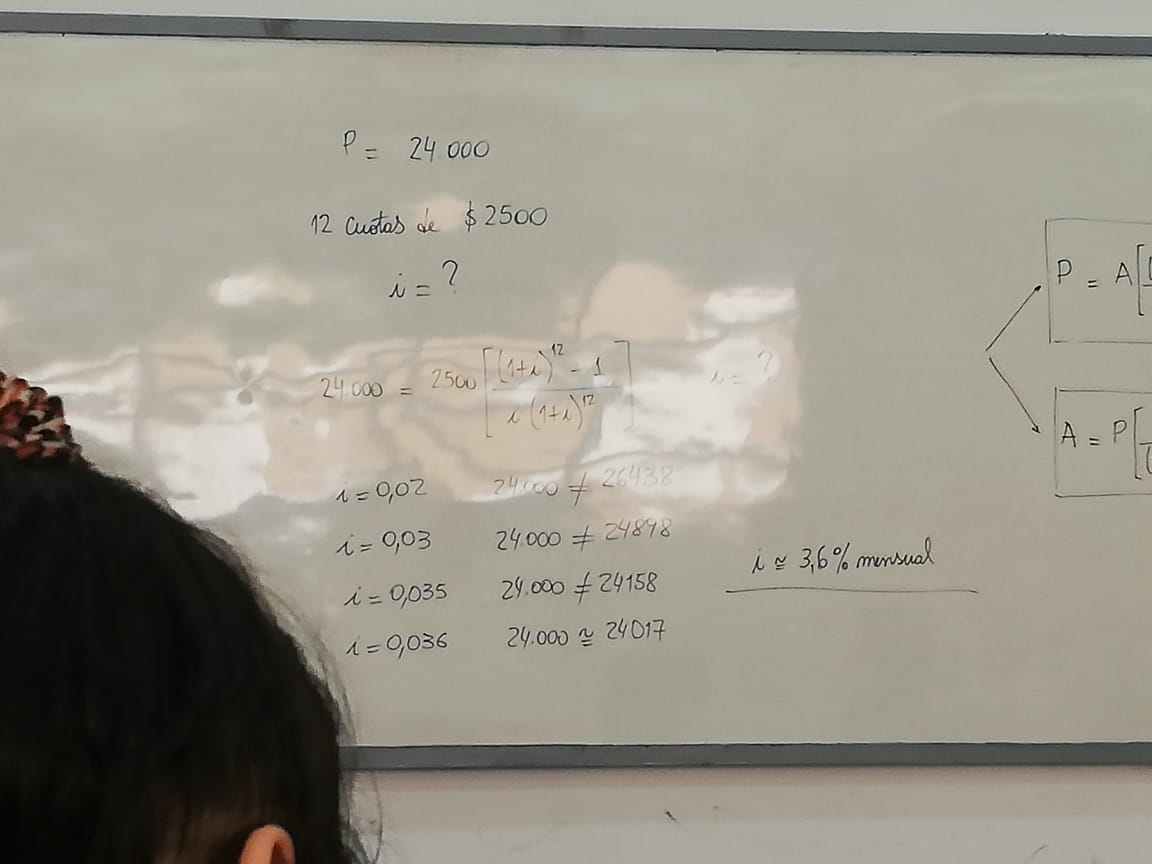 P = 24.000
12 cuotas de $ 2500
i = ?
24.000 = 2500 [ (1+i)^12 - 1 / i (1+i)^12 ]
i = ?
i = 0,02 24.000 ≠ 26438
i = 0,03 24.000 ≠ 24898
i = 0,035 24.000 ≠ 24158
i = 0,036 24.000 ≅ 24017
i ≅ 3,6% mensual
P = A [
A = P [